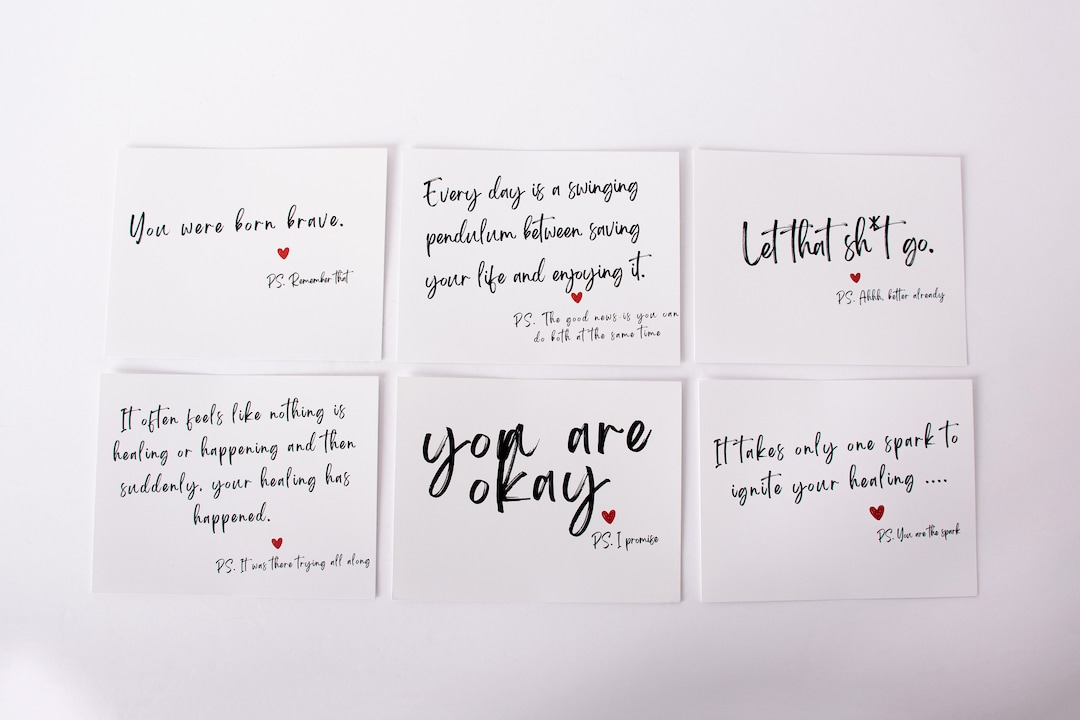 You were born brave.
PS. Remember that
Every day is a swinging
pendulum between saving
your life and enjoying it.
PS. The good news is you can
do both at the same time
Let that sh*t go.
PS. Ahhh, better already
It often feels like nothing is
healing or happening and then
suddenly, your healing has
happened.
PS. It was there trying all along
you are
okay
PS. I promise
It takes only one spark to
ignite your healing ....
PS. You are the spark